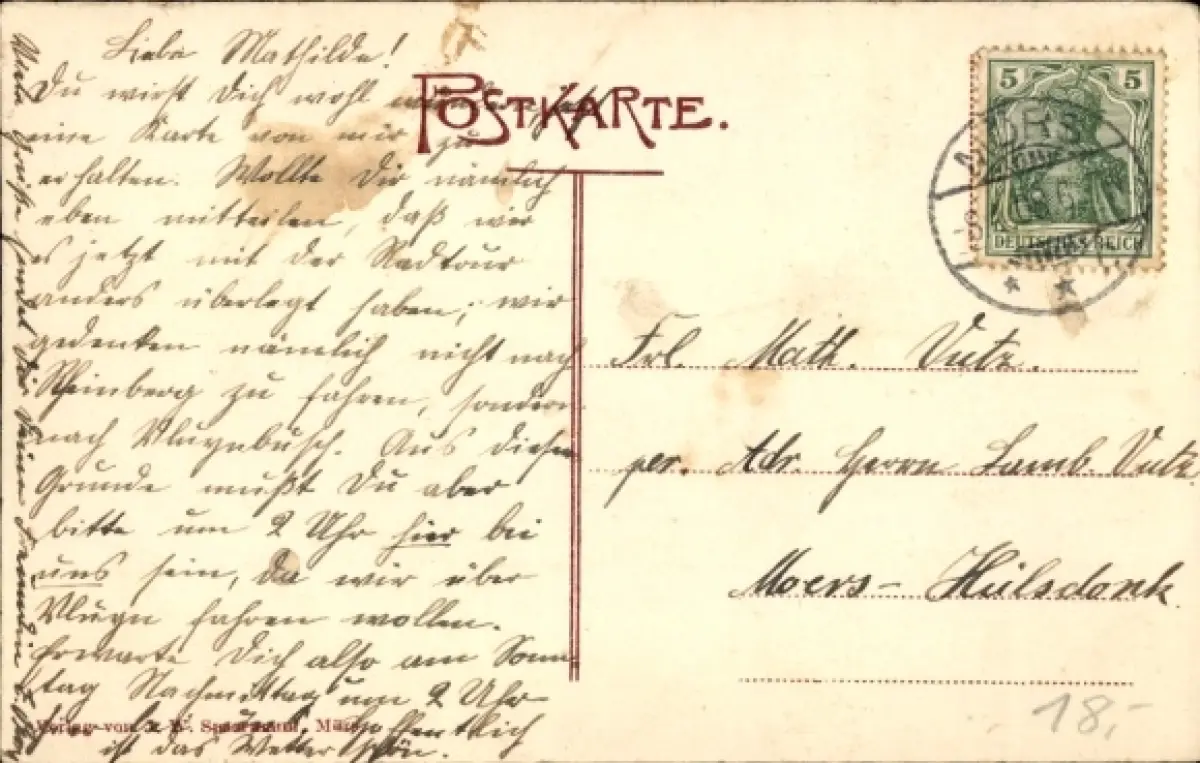 Liebe Mathilde!
Du wirst Dich wohl
eine Karte von mir zu
erhalten. Wollte Dir nämlich
eben mitteilen, daß wir
es jetzt mit der Radtour
anders überlegt haben; wir
gedenken nämlich nicht nach
Rheinberg zu fahren, sondern
nach Vluynbusch. Aus diesem
Grunde mußt Du aber
bitte um 2 Uhr hier bei
uns sein, da wir über
Vluyn fahren wollen.
Erwarte Dich also am Sonn-
tag Nachmittag um 2 Uhr
hoffentlich
ist das Wetter schön.
Viele Grüße sendet Dir Deine Freundin
POSTKARTE.
5 5
DEUTSCHES REICH
Frl. Math. Vutz.
per. Adr. Herrn Lamb. Vutz.
Moers-Hülsdonk.
Verlag von
18,-